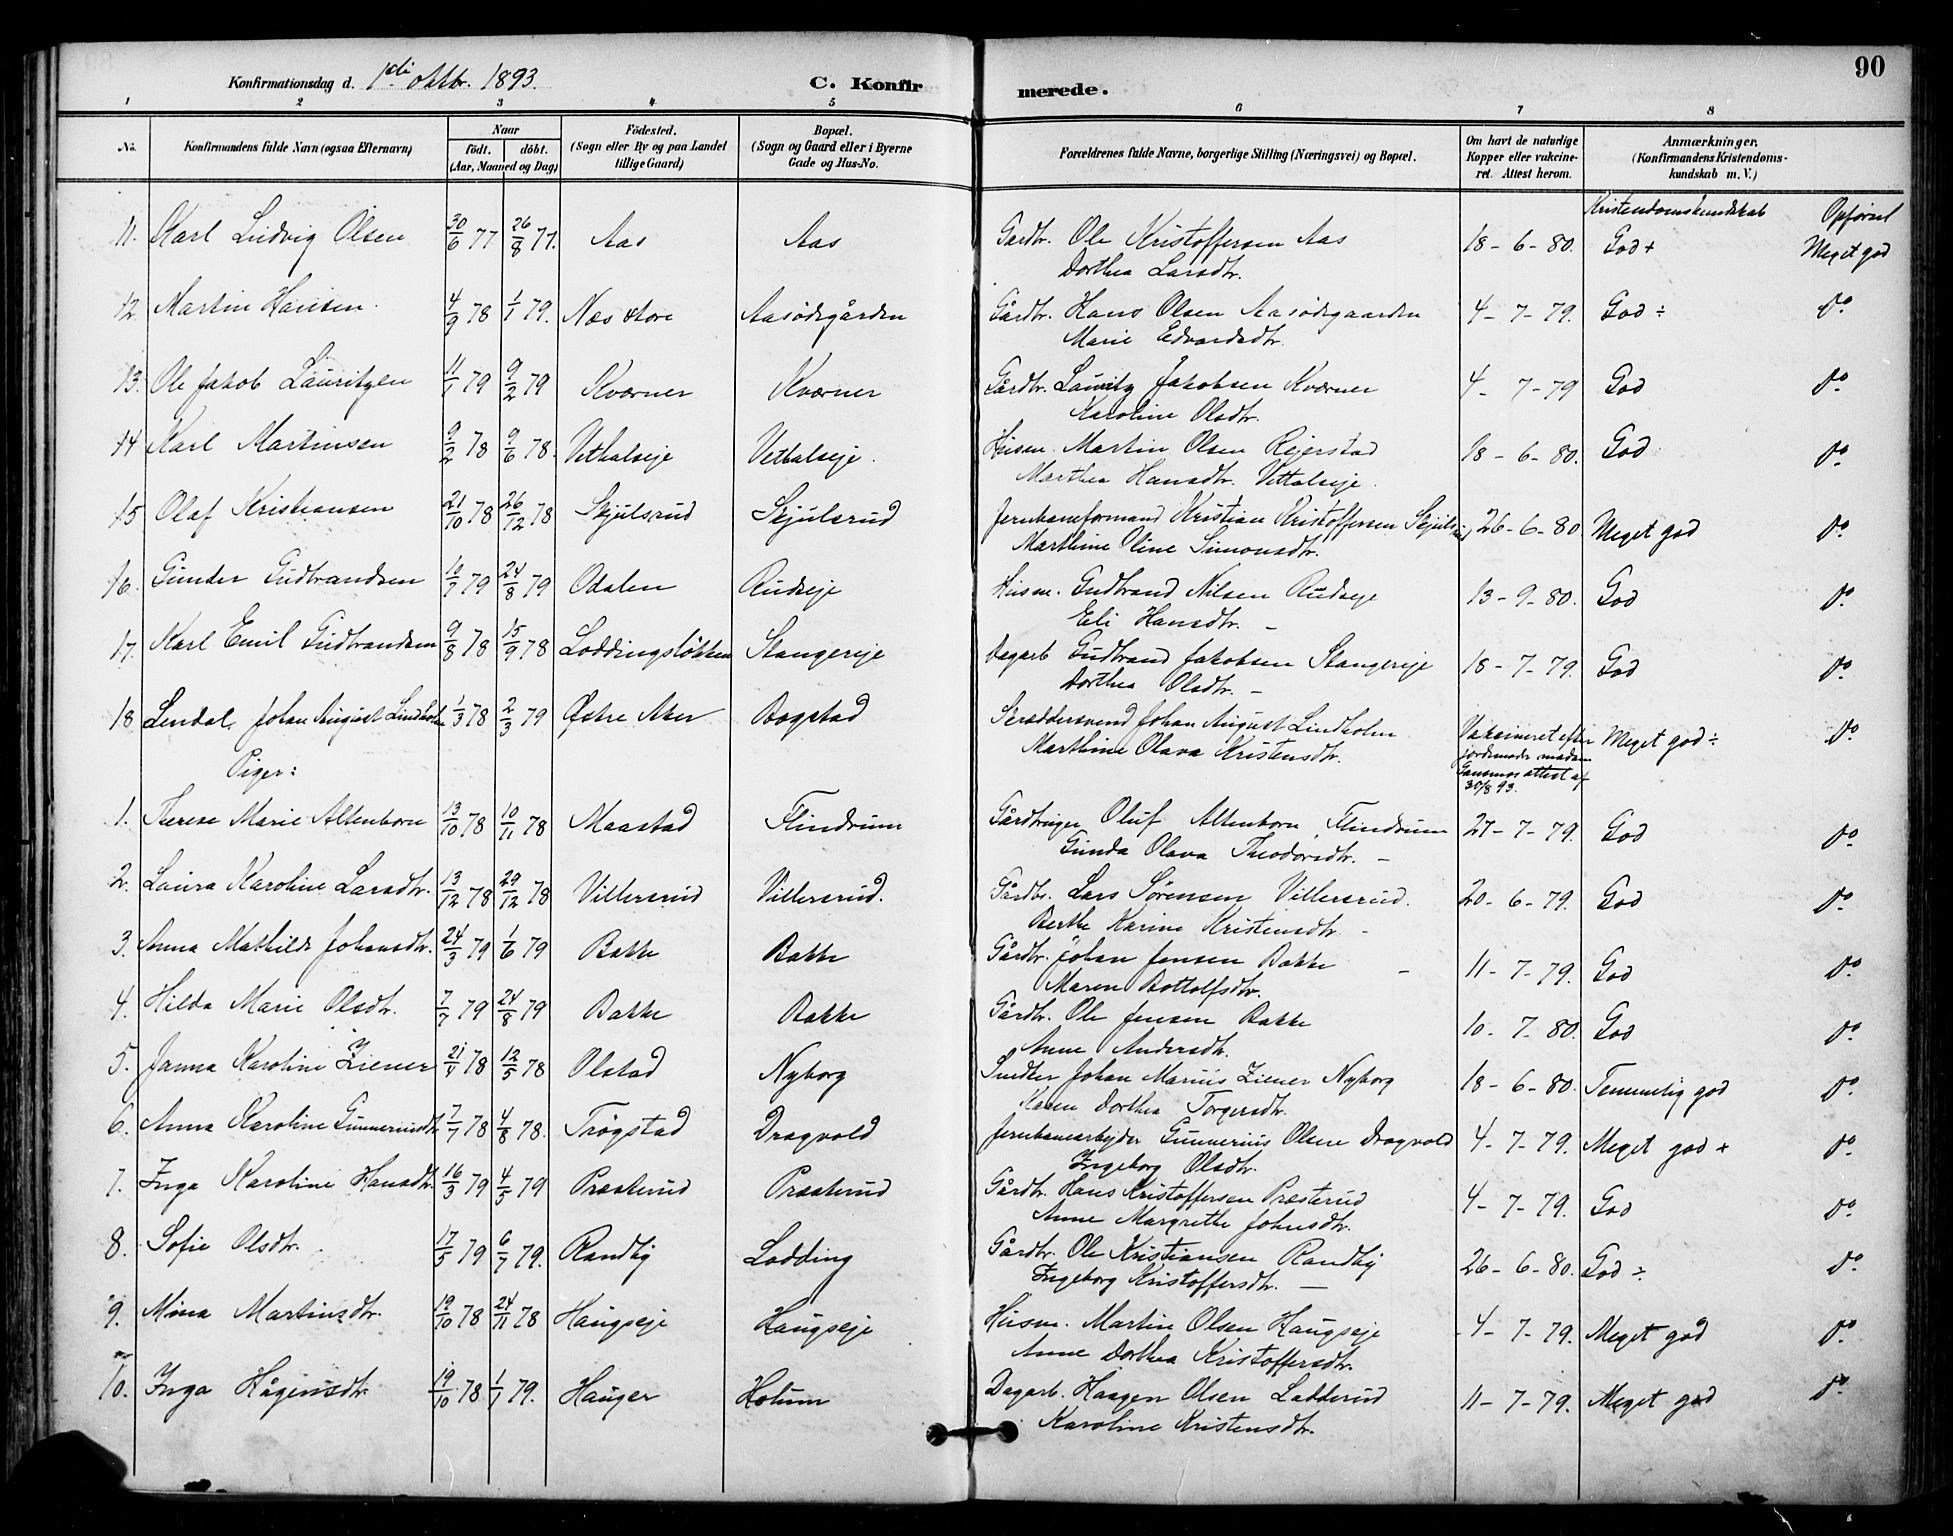 90
Konfirmationsdag d. 1ste oktbr. 1893.
C. Konfirmerede.
1 2 3 4 5 6 7 8
No. Konfirmandens fulde Navn (ogsaa Efternavn) Naar født. døbt. (Aar, Maaned og Dag) Fødested. (Sogn eller By og paa Landet tillige Gaard) Bopæl. (Sogn og Gaard eller i Byerne Gade og Hus-No. Forældrenes fulde Navne, borgerlige Stilling (Næringsvei) og Bopæl. Om havt de naturlige Kopper eller vakcineret. Attest herom. Anmærkninger. (Konfirmandens Kristendomskundskab m. V.)
Kristendomskundskab Opførsel
11. Karl Ludvig Olsen 30/6 77 26/8 77. Aas Aas Gardbr. Ole Kristoffersen Aas 18-6-80. God+ Meget god
Dorthea Larsdtr.
12. Martin Hansen. 4/9 78 1/1 79. Næs store Aasødegården Gårdbr. Hans Olsen Aasødegaarden 4-7-79. God ÷ do.
Marie Edvardsdtr.
13. Ole Jakob Lauritzen 11/1 79 9/2 79 Kværner Kværner Gårdbr. Lauritz Jakobsen Kværner 4-7-79 God do.
Karoline Olsdtr.
14 Karl Martinsen 9/2 78 9/6 78. Vethalseje Vethalseje. Husm. Martin Olsen Rejerstad 18-6-80. God do.
Marthea Hansdtr. Vittalseje.
15 Olaf Kristiansen 21/10 78 26/12 78 Skjulsrud Skjulsrud Jernbaneformand Kristian Kristoffersen Skjulsrud 26-6-80 Meget god do.
Marthine Oline Simonsdtr.
16. Gunder Gudbrandsen 10/7 79 24/8 79 Odalen Rudseje Husm. Gudbrand Nilsen Rudseje 13-9-80. God do.
Eli Hansdtr. –
17. Karl Emil Gudbrandsen 9/8 78 15/9 78 Loddingsløkken Stangereje Dagarb. Gudbrand Jakobsen Stangereje 18-7-79. God do.
Dorthea Olsdtr. –
18 Lendal. Johan August Lindholm 1/3 78 2/3 79 Østre Aker Bogstad Skræddersvend Johan August Lindholm Vakcineret efter Meget god ÷ do.
Marthine Olava Kristensdtr. jordemoder madam
Piger: attest af
30/8 93.
1. Therese Marie Altenborn 13/10 78 10/11 78 Maastad Flindrum Gårdbruger Oluf Altenborn, Flindrum 27-7-79. God do.
Gunda Olava Theodorsdtr. –
2. Laura Karoline Larsdtr. 13/12 78 29/12 78 Villersrud Villersrud. Gårdbr. Lars Sørensen Villersrud. 20-6-79. God do.
Berthe Karine Kristensdtr. –
3. Anna Mathilde Johansdtr. 24/3 79 1/6 79 Bakke Bakke Gårdbr. Johan Jensen Bakke – 11-7-79. God do.
Maren Bottolfsdtr.
4. Hilda Marie Olsdtr. 7/7 79 24/8 79 Bakke Bakke Gårdbr. Ole Jensen Bakke 10-7-80. God do.
Anne Andersdtr.
5. Janna Karoline Ziener 21/4 78 12/5 78 Olstad Nyborg Snedker Johan Marius Ziener Nyborg 18-6-80. Temmelig god do.
Karen Dorthea Torgersdtr.
6. Anna Karoline Gunneriusdtr. 7/7 78 4/8 78. Trøgstad Dragvold Jernbanearbejder Gunnerius Olsen Dragvold 4-7-79. Meget god + do.
Ingeborg Olsdtr.
7. Inga Karoline Hansdtr. 16/3 79 4/5 79 Præsterud Præsterud Gårdbr. Hans Kristoffersen Præsterud 4-7-79. God do.
Anne Margrethe Johnsdtr.
8. Sofie Olsdtr. 17/5 79 6/7 79. Randby Lodding Gårdbr. Ole Kristiansen Randby 26-6-80. God ÷ do.
Ingeborg Kristoffersdtr. –
9. Mina Martinsdtr. 19/10 78 24/11 78 Haugseje Haugseje Husm. Martin Olsen Haugseje 4-7-79. Meget god do.
Anne Dorthea Kristoffersdtr.
10. Inga Hågensdtr. 19/10 78 1/1 79. Hauger Holum Dagarb. Haagen Olsen Ladderud 11-7-79. Meget god do.
Karoline Kristensdtr.